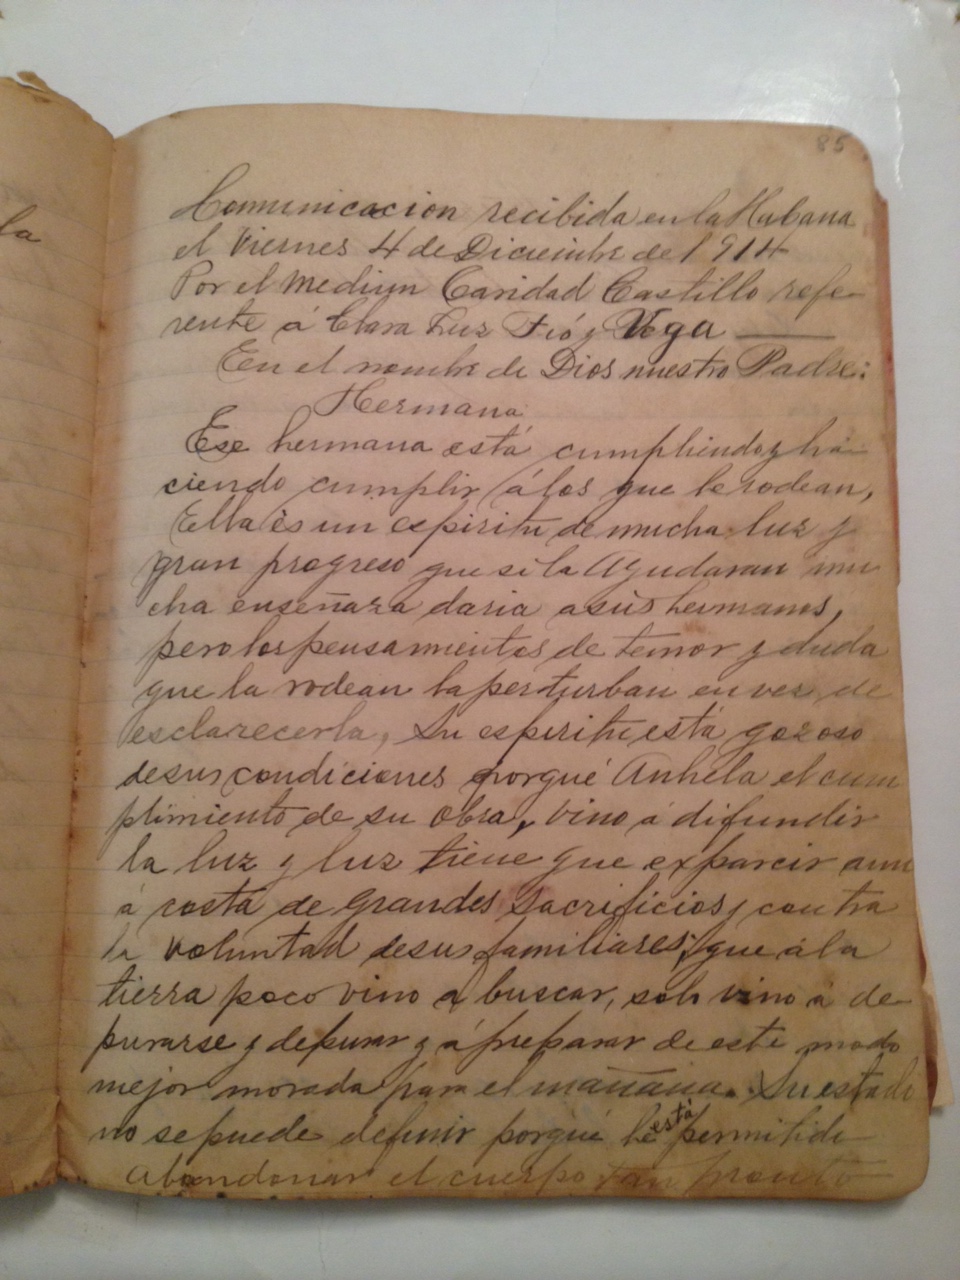 la
85
Comunicacion recibida en la Habana
el Viernes 4 de Diciembre de 1914
Por el Medium Caridad Castillo refe-
rente á Clara Luz Fió y Vega
En el nombre de Dios nuestro Padre:
Hermana
Ese hermana está cumpliendo y ha-
ciendo cumplir á los que le rodean,
Ella es un espiritu de mucha luz y
gran progreso que si la Ayudaran mu
cha enseñaza daria a sus hermanos,
pero los pensamientos de temor y duda
que la rodean la perturban en vez de
esclarecerla, Su espiritu está gozoso
de sus condiciones porqué Anhela el cum
plimiento de su Obra, vino á difundir
la luz y luz tiene que exparcir aun
á costa de grandes Sacrificios y contra
la voluntad de sus familiares; que á la
tierra poco vino a buscar, solo vino á de-
purarse y depurar y á preparar de este modo
mejor morada para el mañana. Su estado
no se puede definir porqué le está permitido
abandonar el cuerpo tan pronto